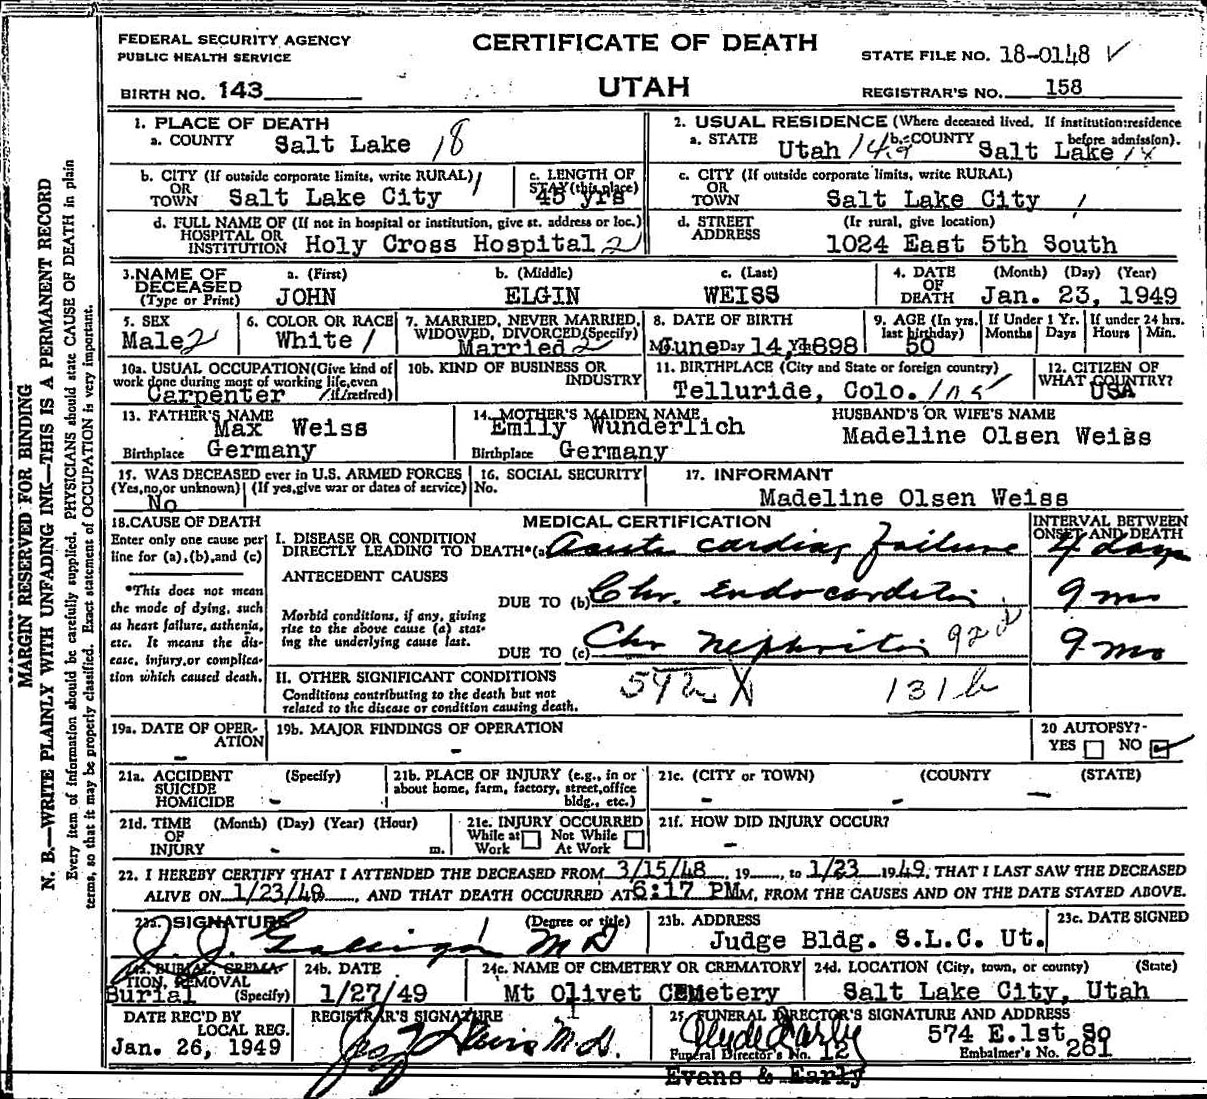 FEDERAL SECURITY AGENCY
PUBLIC HEALTH SERVICE
CERTIFICATE OF DEATH
UTAH
STATE FILE NO. 18-0148 ✓
BIRTH NO. 143
REGISTRAR'S NO. 158
MARGIN RESERVED FOR BINDING
N. B.—WRITE PLAINLY WITH UNFADING INK—THIS IS A PERMANENT RECORD
Every item of information should be carefully supplied. PHYSICIANS should state CAUSE OF DEATH in plain
terms, so that it may be properly classified. Exact statement of OCCUPATION is very important.
1. PLACE OF DEATH
a. COUNTY Salt Lake 18
2. USUAL RESIDENCE (Where deceased lived. If institution:residence before admission).
a. STATE Utah 149 b. COUNTY Salt Lake 18
b. CITY (If outside corporate limits, write RURAL)
OR TOWN Salt Lake City 1
c. LENGTH OF STAY (this place) 45 yrs
c. CITY (If outside corporate limits, write RURAL)
OR TOWN Salt Lake City 1
d. FULL NAME OF (If not in hospital or institution, give st. address or loc.)
HOSPITAL OR INSTITUTION Holy Cross Hospital 2
d. STREET ADDRESS (If rural, give location)
1024 East 5th South
3. NAME OF DECEASED (Type or Print)
a. (First) JOHN
b. (Middle) ELGIN
c. (Last) WEISS
4. DATE OF DEATH (Month) (Day) (Year)
Jan. 23, 1949
5. SEX
Male 2
6. COLOR OR RACE
White 1
7. MARRIED, NEVER MARRIED, WIDOWED, DIVORCED(Specify)
Married 2
8. DATE OF BIRTH
June Day 14, 1898
9. AGE (In yrs. last birthday) 50
If Under 1 Yr. Months Days
If under 24 hrs. Hours Min.
10a. USUAL OCCUPATION(Give kind of work done during most of working life,even if retired)
Carpenter
10b. KIND OF BUSINESS OR INDUSTRY
11. BIRTHPLACE (City and State or foreign country)
Telluride, Colo. 105
12. CITIZEN OF WHAT COUNTRY?
USA
13. FATHER'S NAME
Max Weiss
Birthplace Germany
14. MOTHER'S MAIDEN NAME
Emily Wunderlich
Birthplace Germany
HUSBAND'S OR WIFE'S NAME
Madeline Olsen Weiss
15. WAS DECEASED ever in U.S. ARMED FORCES
(Yes,no,or unknown) (If yes,give war or dates of service)
No
16. SOCIAL SECURITY No.
17. INFORMANT
Madeline Olsen Weiss
18. CAUSE OF DEATH
Enter only one cause per line for (a),(b),and (c)
*This does not mean the mode of dying, such as heart failure, asthenia, etc. It means the disease, injury,or complication which caused death.
MEDICAL CERTIFICATION
INTERVAL BETWEEN ONSET AND DEATH
I. DISEASE OR CONDITION
DIRECTLY LEADING TO DEATH*(a) Acute cardiac failure 4 days
ANTECEDENT CAUSES
DUE TO (b) Chr. Endocarditis 9 mo
Morbid conditions, if any, giving rise to the above cause (a) stating the underlying cause last.
DUE TO (c) Chr nephritis 92 d 9 mo
II. OTHER SIGNIFICANT CONDITIONS
Conditions contributing to the death but not related to the disease or condition causing death.
592 X 131 b
19a. DATE OF OPERATION
-
19b. MAJOR FINDINGS OF OPERATION
-
20 AUTOPSY?-
YES NO ✓
21a. ACCIDENT SUICIDE HOMICIDE (Specify)
-
21b. PLACE OF INJURY (e.g., in or about home, farm, factory, street,office bldg., etc.)
21c. (CITY or TOWN) (COUNTY) (STATE)
- - -
21d. TIME OF INJURY (Month) (Day) (Year) (Hour) m.
-
21e. INJURY OCCURRED
While at Work Not While At Work
21f. HOW DID INJURY OCCUR?
-
22. I HEREBY CERTIFY THAT I ATTENDED THE DECEASED FROM 3/15/48, 19......, to 1/23 1949, THAT I LAST SAW THE DECEASED
ALIVE ON 1/23/49, AND THAT DEATH OCCURRED AT 6:17 PM M, FROM THE CAUSES AND ON THE DATE STATED ABOVE.
23a. SIGNATURE (Degree or title)
J. J. Galligan M D
23b. ADDRESS
Judge Bldg. S.L.C. Ut.
23c. DATE SIGNED
24a. BURIAL, CREMATION, REMOVAL (Specify)
Burial
24b. DATE
1/27/49
24c. NAME OF CEMETERY OR CREMATORY
Mt Olivet Cemetery
24d. LOCATION (City, town, or county) (State)
Salt Lake City, Utah
DATE REC'D BY LOCAL REG.
Jan. 26, 1949
REGISTRAR'S SIGNATURE
M.D.
25. FUNERAL DIRECTOR'S SIGNATURE AND ADDRESS
Clyde Early 574 E.1st So
Funeral Director's No. 12 Embalmer's No. 261
Evans & Early